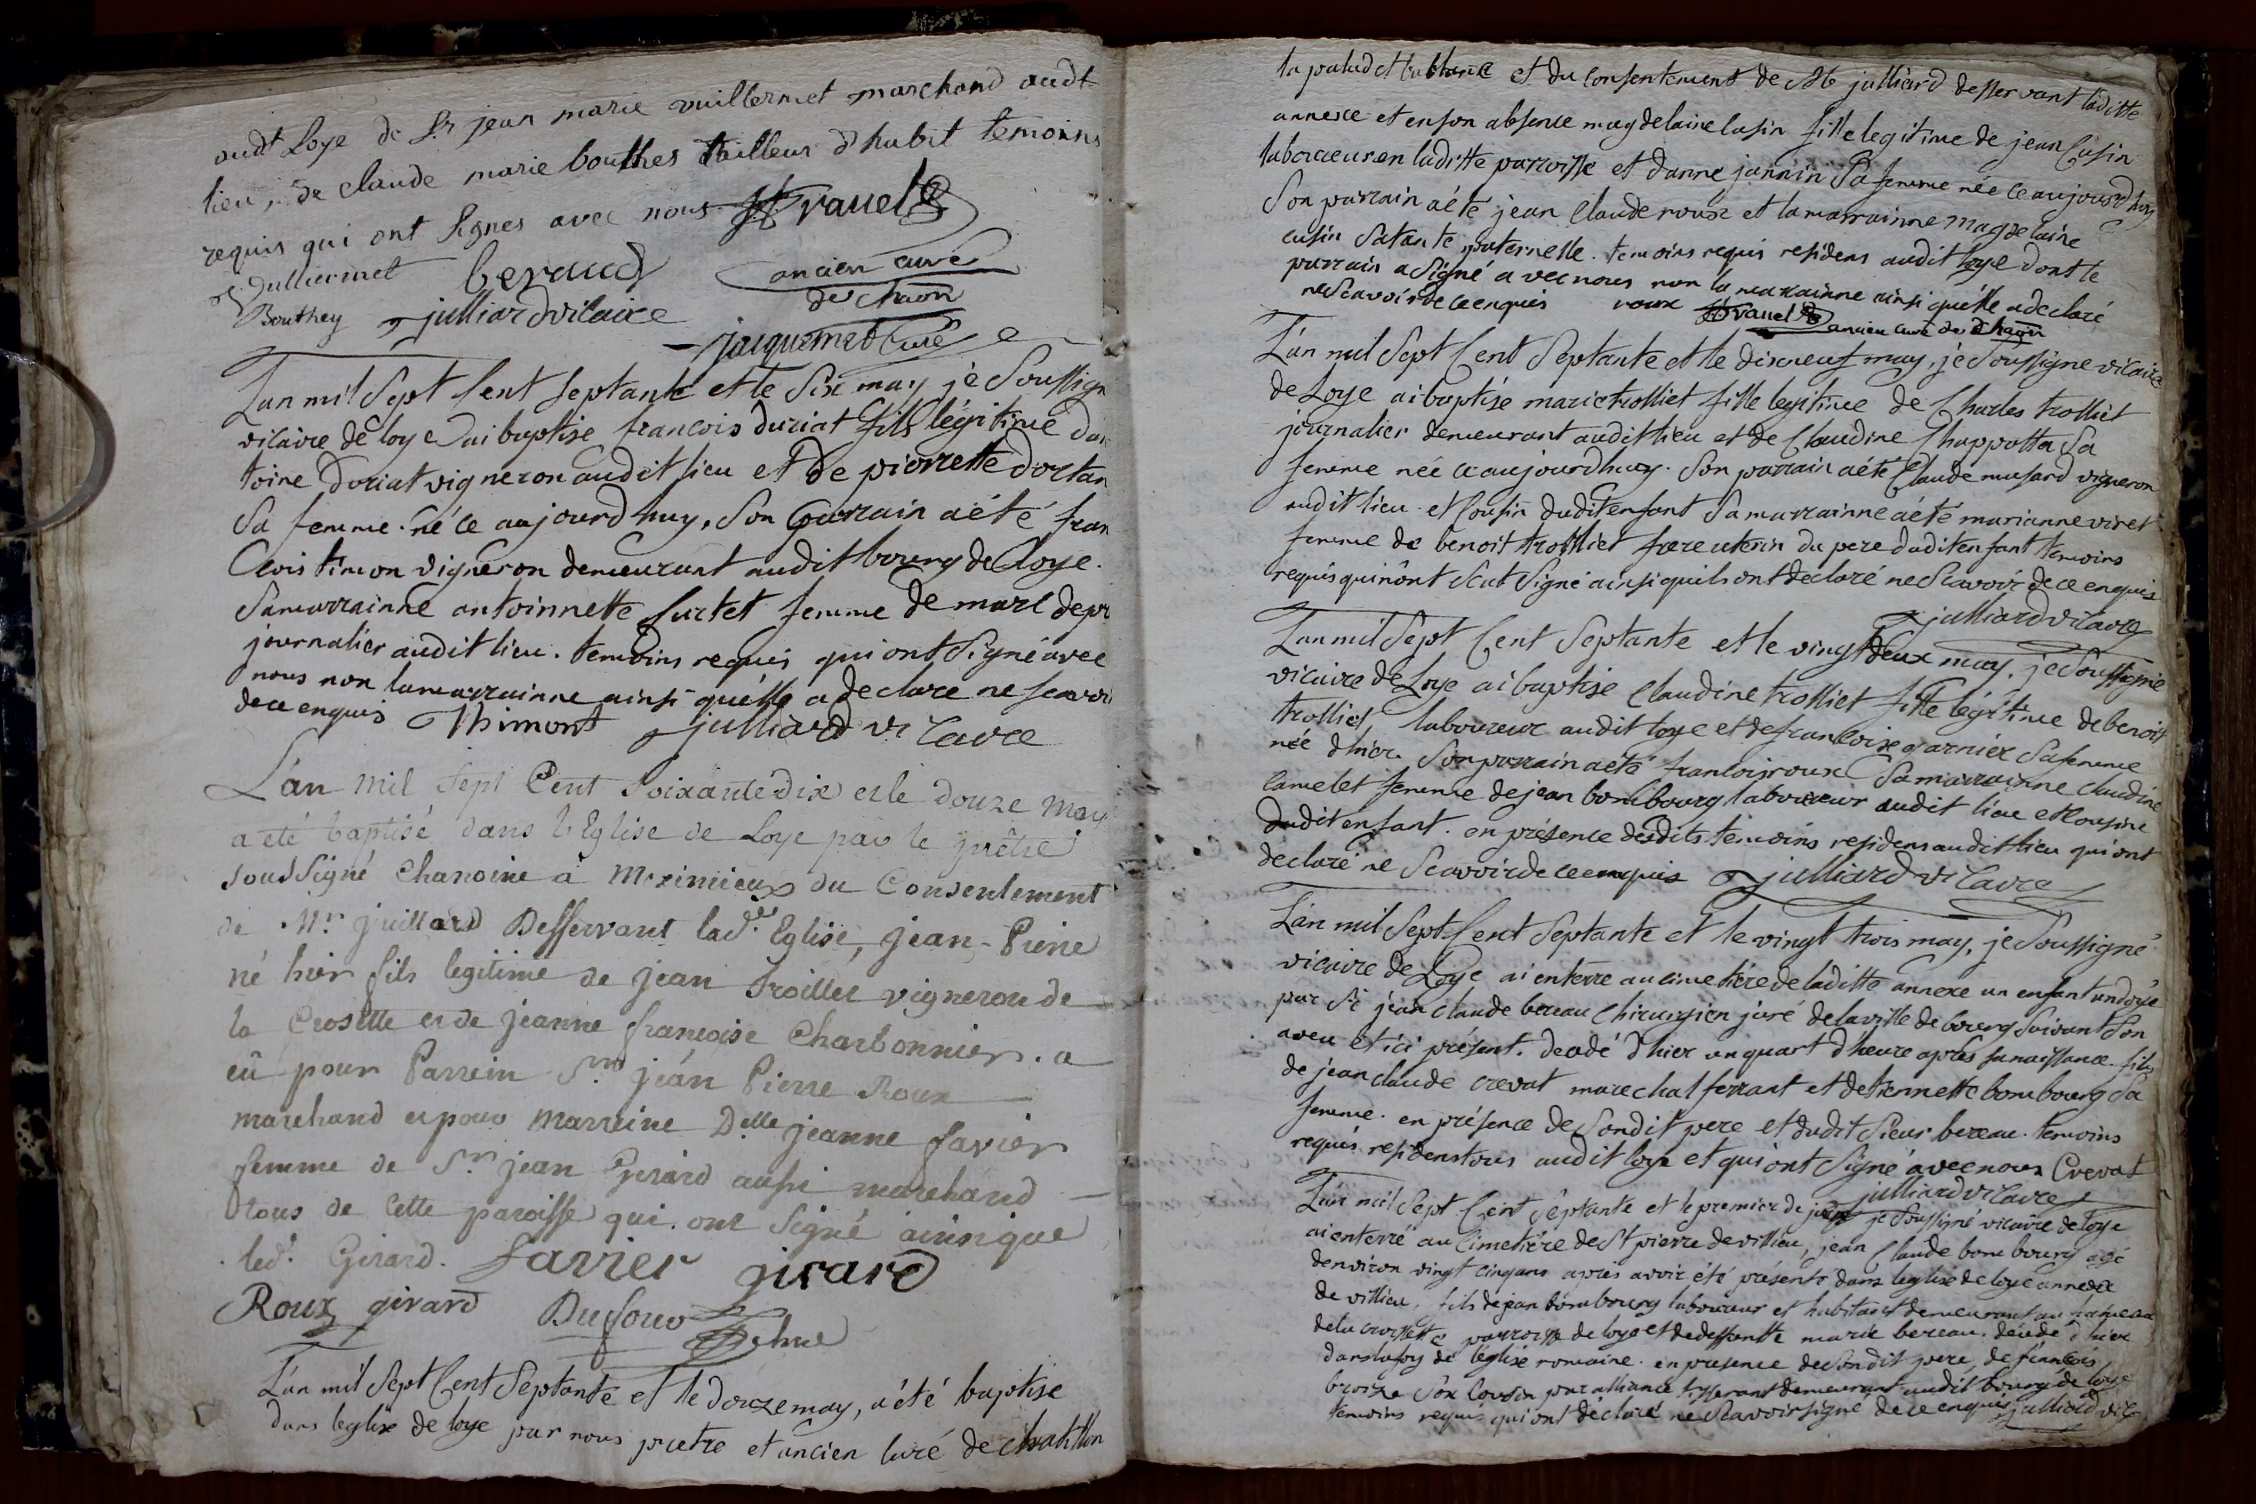 audt Loye de Sr jean marie vuillermet marchand audt
lieu, de claude marie bouthes tailleur d'habit temoins
requis qui ont signes avec nous ravel
vullermet beraud ancien curé
Bouthey julliard vicaire de
jacquemet curé
L'an mil sept cent septante et le six may je soussign
vicaire de loye ai baptisé francois duriat fils légitime dan
toine doriat vigneron audit lieu et de pierrette doctan
sa femme. né ce aujourdhuy. son parrain a été fran
cois timon vigneron demeurant audit bourg de loye.
sa marrainne antoinnette curtet femme de marc depr
journalier audit lieu. temoins requis qui ont signé avec
nous non la marrainne ainsi quelle a declare ne scavoi
de ce enquis Thimont julliard vicaire
L'an mil sept Cent soixante dix et le douze may
a eté baptisé dans l'Eglise de Loye par le prêtre
soussigné Chanoine à Meximieux du Consentement
de Mr. juillard Desservant lad.e Eglise, jean-Pierre
né hier fils legitime de jean Troillet vigneron de
la Crosette et de jeanne francoise Charbonnier. a
eû pour Parrein Sr. jean Pierre Roux
marchand et pour Marreine Delle jeanne favier
femme de Sr. jean Girard aussi marchand
tous de cette paroisse qui ont signé ainsi que
led. Girard. favier girard
Roux girard Dufour
L'an mil sept cent septante et le douze may, a été baptisé
dans l'eglise de loye par nous pretre et ancien curé de chatillon
la palud et du consentement de Mr julliard desservant laditte
annexe et en son absence magdelaine cusin fille legitime de jean cusin
laboureur en laditte parroisse et danne jannin sa femme née ce aujourdhuy
son parrain a été jean claude roux et la marrainne magdelaine
cusin sa tante paternelle. temoins requis residens audit loye dont le
parrain a signé avec nous non la marrainne ainsi quelle a declaré
ne scavoir de ce enquis roux ravel ancien curé de
L'an mil sept cent septante et le dixneuf may, je soussigné vicaire
de Loye ai baptisé marie trolliet fille legitime de Charles trolliet
journalier demeurant audit lieu et de Claudine Chappotta sa
femme née ce aujourdhuy. son parrain a été Claude musard vigneron
audit lieu et cousin dudit enfant sa marrainne a été marianne viret
femme de benoit trolliet frere uterin du pere dudit enfant temoins
requis qui n'ont scut signé ainsi quils ont declaré ne scavoir de ce enquis
julliard vicaire
L'an mil sept cent septante et le vingt deux may, je soussigné
vicaire de Loye ai baptisé Claudine trolliet fille légitime de benoit
trolliet, laboureur audit loye et de francoise garnier sa femme
née d'hier. son parrain a été francois roux sa marrainne claudine
camelet femme de jean bombourg laboureur audit lieu et cousine
dudit enfant. en présence desdits temoins residens audit lieu qui ont
declaré ne scavoir de ce enquis julliard vicaire
L'an mil sept cent septante et le vingt trois may, je soussigné
vicaire de Loye ai enterré au cimetière de laditte annexe un enfant undoyé
par Sr jean claude bereau chirurgien juré de la ville de bourg suivant son
aveu et ici présent. decedé d'hier un quart d'heure après sa naissance fils
de jean claude crevat marechal ferrant et detiennette bombourg sa
femme. en présence de sondit pere et dudit sieur bereau. temoins
requis residens tous audit loye et qui ont signé avec nous Crevat
julliard vicaire
L'an mil sept cent septante et le premier de juin je soussigné vicaire de loye
ai enterré au cimetière de St pierre de villieu, jean Claude bombourg agé
denviron vingt cinq ans après avoir été présenté dans leglise de loye annexe
de villieu, fils de jean bombourg laboureur et habitant demeurant au hameau
de la crosette parroisse de loye et de deffuntte marie bereau. decedé d'hier
dans la foy de l'église romaine. en presence de sondit pere, de francois
broize son cousin par alliance tisserant demeurant audit bourg de loye
temoins requis qui ont declaré ne scavoir signé de ce enquis julliard vic